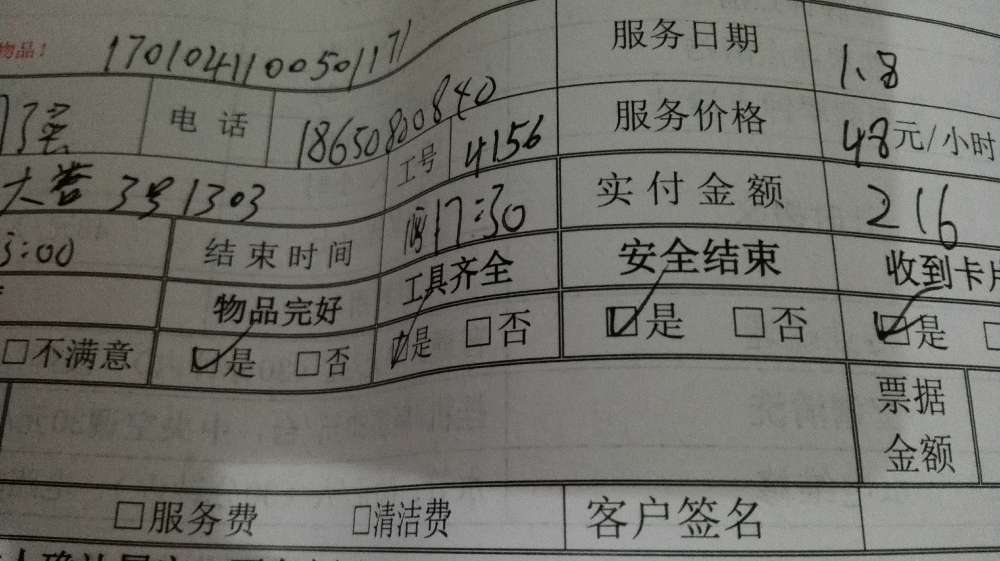 物品! 17010411005011771 服务日期 1.8
电话 18650800840 服务价格 48元/小时
工号 4156
3号1303 实付金额 216
:00 结束时间 17:30
物品完好 工具齐全 安全结束 收到卡片
□不满意 ☑是 □否 ☑是 □否 ☑是 □否 ☑是 □
票据
金额
□服务费 □清洁费 客户签名